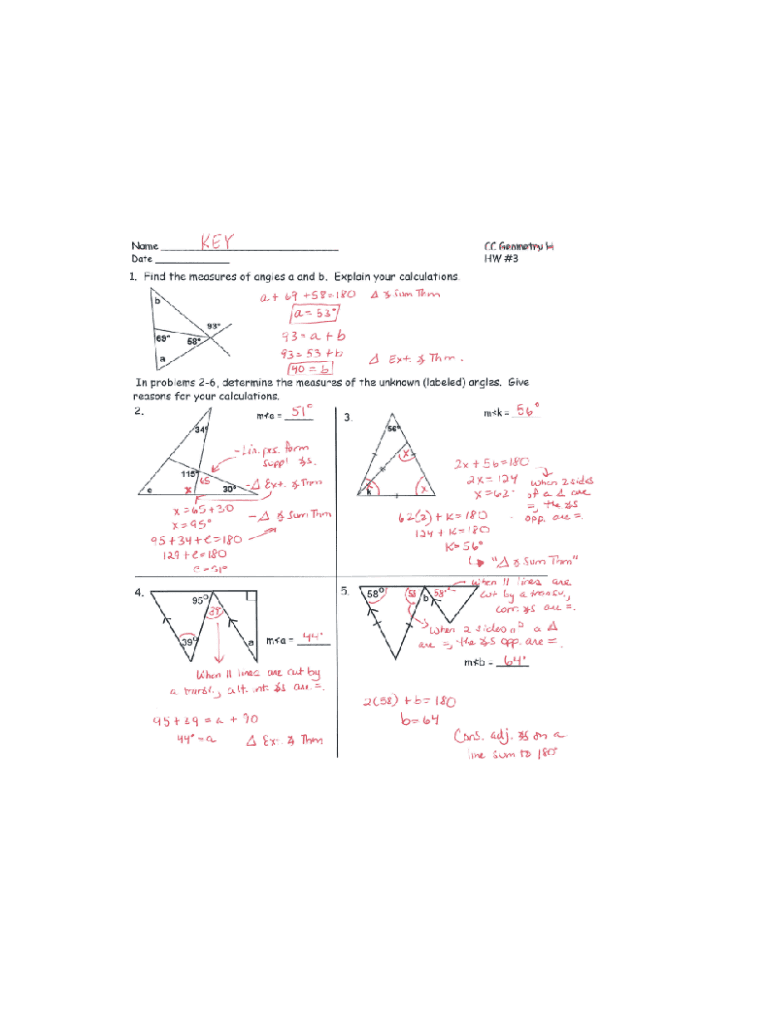 Name KEY
CC Geometry H
Date
HW #3
1. Find the measures of angles a and b. Explain your calculations.
a + 69 + 58 = 180 Δ ∡ Sum Thm
a = 53°
93 = a + b
93 = 53 + b Δ Ext. ∡ Thm.
40 = b
b
93°
69°
58°
a
In problems 2-6, determine the measures of the unknown (labeled) angles. Give
reasons for your calculations.
2.
m∡e = 51°
34°
115°
65
e
x
30°
- Lin. prs. form
suppl ∡s.
- Δ Ext. ∡ Thm
x = 65 + 30
x = 95°
- Δ ∡ Sum Thm
95 + 34 + e = 180
129 + e = 180
e = 51°
3.
m∡k = 56°
56°
x
k
x
2x + 56 = 180
2x = 124
x = 62°
when 2 sides
of a Δ are
=, the ∡s
opp. are =.
62(2) + K = 180
124 + K = 180
K = 56°
"Δ ∡ Sum Thm"
4.
95°
39°
39°
a
m∡a = 44°
When || lines are cut by
a transv., alt. int. ∡s are =.
95 + 39 = a + 90
44° = a Δ Ext. ∡ Thm
5.
58°
58
b
58°
When || lines are
cut by a transv.,
corr. ∡s are =.
When 2 sides of a Δ
are =, the ∡s opp. are =.
m∡b = 64°
2(58) + b = 180
b = 64
Cons. adj. ∡s on a
line sum to 180